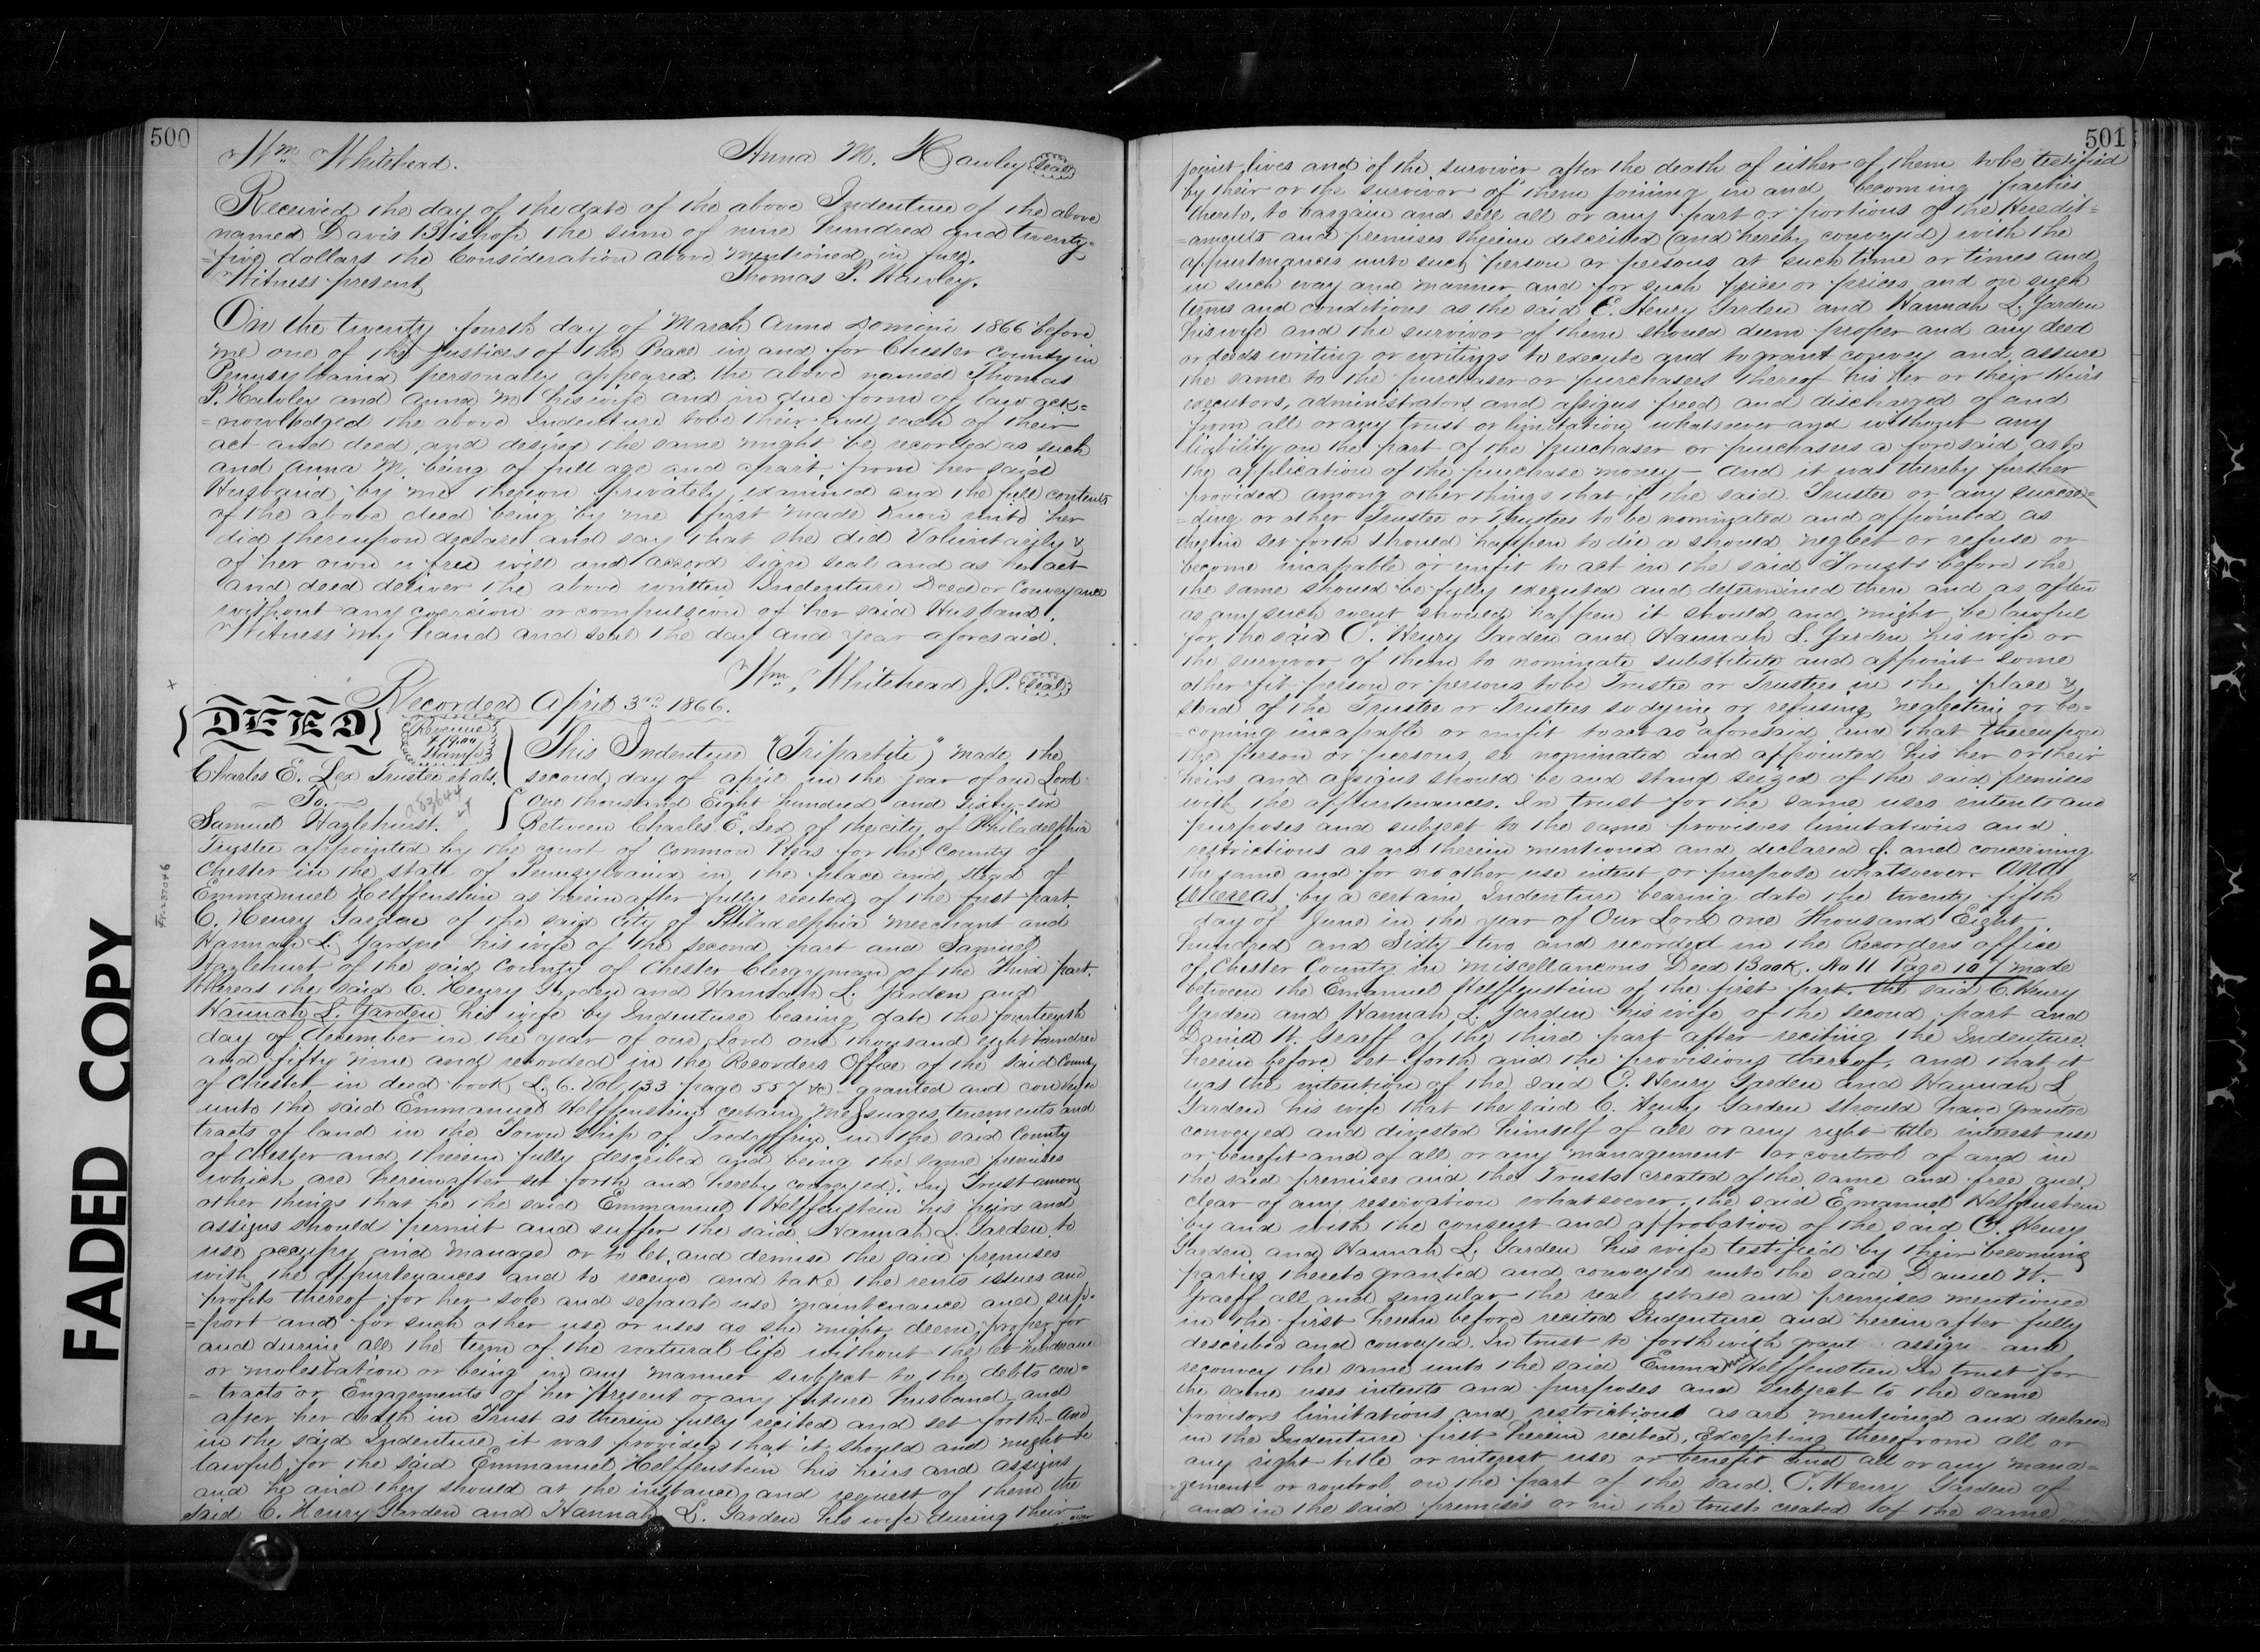 500
Wm Whitehead. Anna M. Hawley seal
Received the day of the date of the above Indenture of the above
named Davis Bishop the sum of nine hundred and twenty=
=five dollars the Consideration above mentioned in full.
Witness present Thomas P. Hawley.
On the twenty fourth day of March Anno Domini 1866 before
me one of the Justices of the Peace in and for Chester County in
Pennsylvania personally appeared the above named Thomas
P. Hawley and Anna M his wife and in due form of law ack=
=nowledged the above Indenture to be their and each of their
act and deed and desired the same might be recorded as such
and Anna M. being of full age and apart from her said
Husband by me thereon privately examined and the full contents
of the above deed being by me first made Know unto her
did thereupon declare and say that she did Voluntarily &
of her own free will and accord sign seal and as her act
and deed deliver the above written Indenture Deed or Conveyance
without any coercion or compulsion of her said Husband.
Witness my hand and seal the day and year aforesaid.
Wm. Whitehead J.P. seal
Recorded April 3rd 1866.
DEED
Revenue
Stamps
Charles E. Lex Trustee et als.
To.
Samuel Hazlehurst.
This Indenture "(Tripartite)" made the
second day of april in the year of our Lord
One thousand Eight hundred and sixty-six
Between Charles E. Lex of the city of Philadelphia
Trustee appointed by the court of Common Pleas for the County of
Chester in the state of Pennsylvania in the place and stead of
Emmanuel Helffenstein as herein after fully recited of the first part.
C. Henry Garden of the said City of Philadelphia Merchant and
Hannah L. Gardne his wife of the second part and Samuel
Hazlehurst of the said County of Chester Clergyman of the Third part.
Whereas the said C. Henry Garden and Hannah L. Garden and
Hannah L. Garden his wife by Indenture bearing date the fourteenth
day of december in the year of our Lord one thousand eight hundred
and fifty nine and recorded in the Recorders Office of the said County
of Chester in deed book L. 6. Vol 133 page 557 &c granted and conveyed
unto the said Emmanuel Helffenstein certain messuages tenements and
tracts of land in the Town Ship of Tredyffrin in the said County
of Chester and therein fully described and being the same premises
which are hereinafter set forth and hereby conveyed. In Trust among
other things that he the said Emmanuel Helffenstein his heirs and
assigns should permit and suffer the said Hannah L. Garden to
use occupy and manage or to let and demise the said premises
with the appurtenances and to receive and take the rents issues and
profits thereof for her sole and separate use maintenance and sup=
=port and for such other use or uses as she might deem proper for
and during all the term of the natural life without the let hindrance
or molestation or being in any manner subject to the debts con=
=tracts or Engagements of her present or any future husband and
after her death in Trust as therein fully recited and set forth and
in the said Indenture it was provided that it should and might be
lawful for the said Emmanuel Helffenstein his heirs and assigns
and he and they should at the instance and request of them the
said C. Henry Garden and Hannah L. Garden his wife during their
501
joint lives and of the survivor after the death of either of them to be testified
by their or the survivor of them joining in and becoming parties
thereto, to bargain and sell all or any part or portions of the Heredit=
=aments and premises therein described (and hereby conveyed) with the
appurtenances unto such person or persons at such time or times and
in such way and manner and for such price or prices and on such
terms and conditions as the said C. Henry Garden and Hannah L. Garden
his wife and the survivor of them should deem proper and any deed
or deeds writing or writings to execute and to grant convey and assure
the same to the purchaser or purchasers thereof his her or their Heirs
executors, administrators and assigns freed and discharged of and
from all or any trust or limitation whatsoever and without any
liability on the part of the purchaser or purchasers aforesaid as to
the application of the purchase money - and it was thereby further
provided among other things that if the said Trustee or any succee=
=ding or other Trustee or Trustees to be nominated and appointed as
therein set forth should happen to die a should neglect or refuse or
become incapable or unfit to act in the said Trusts before the
the same should be fully executed and determined then and as often
as any such event should happen it should and might be lawful
for the said C. Henry Garden and Hannah L. Garden his wife or
the survivor of them to nominate substitute and appoint some
other fit person or persons to be Trustee or Trustees in the place &
stead of the Trustee or Trustees so dying or refusing neglecting or be=
=coming incapable or unfit to act as aforesaid and that thereupon
the person or persons so nominated and appointed his her or their
heirs and assigns should be and stand seized of the said premises
with the appurtenances. In trust for the same uses intents and
purposes and subject to the same provisoes limitations and
restrictions as are therein mentioned and declared of and concerning
the same and for no other use intent or purpose whatsoever. And
Whereas by a certain Indenture bearing date the twenty fifth
day of June in the year of Our Lord one thousand Eight
hundred and Sixty two and recorded in the Recorders office
of Chester County in Miscellaneous Deed Book. No 11 Page 107 made
between the Emanuel Helffenstein of the first part. the said C. Henry
Garden and Hannah L. Garden his wife of the second part and
Daniel W. Graeff of the third part after reciting the Indenture
herein before set forth and the provisions thereof, and that it
was the intention of the said C. Henry Garden and Hannah L
Garden his wife that the said C. Henry Garden should have granted
conveyed and divested himself of all or any right title interest use
or benefit and of all or any management or control of and in
the said premises and the Trusts created of the same and free and
clear of any reservation whatsoever. the said Emanuel Helffenstein
by and with the consent and approbation of the said C. Henry
Garden and Hannah L. Garden his wife testified by their becoming
parties thereto granted and conveyed unto the said Daniel W.
Graeff all and singular the real estate and premises mentioned
in the first herein before recited Indenture and herein after fully
described and conveyed. In trust to forthwith grant assign and
reconvey the same unto the said Emmanuel Helffenstein In trust for
the same uses intents and purposes and subject to the same
provisors limitations and restrictions as are mentioned and declared
in the Indenture first herein recited. Excepting therefrom all or
any right title or interest use or benefit and all or any mana=
gement or control on the part of the said C. Henry Garden of
and in the said premises or in the trusts created of the same
FADED COPY